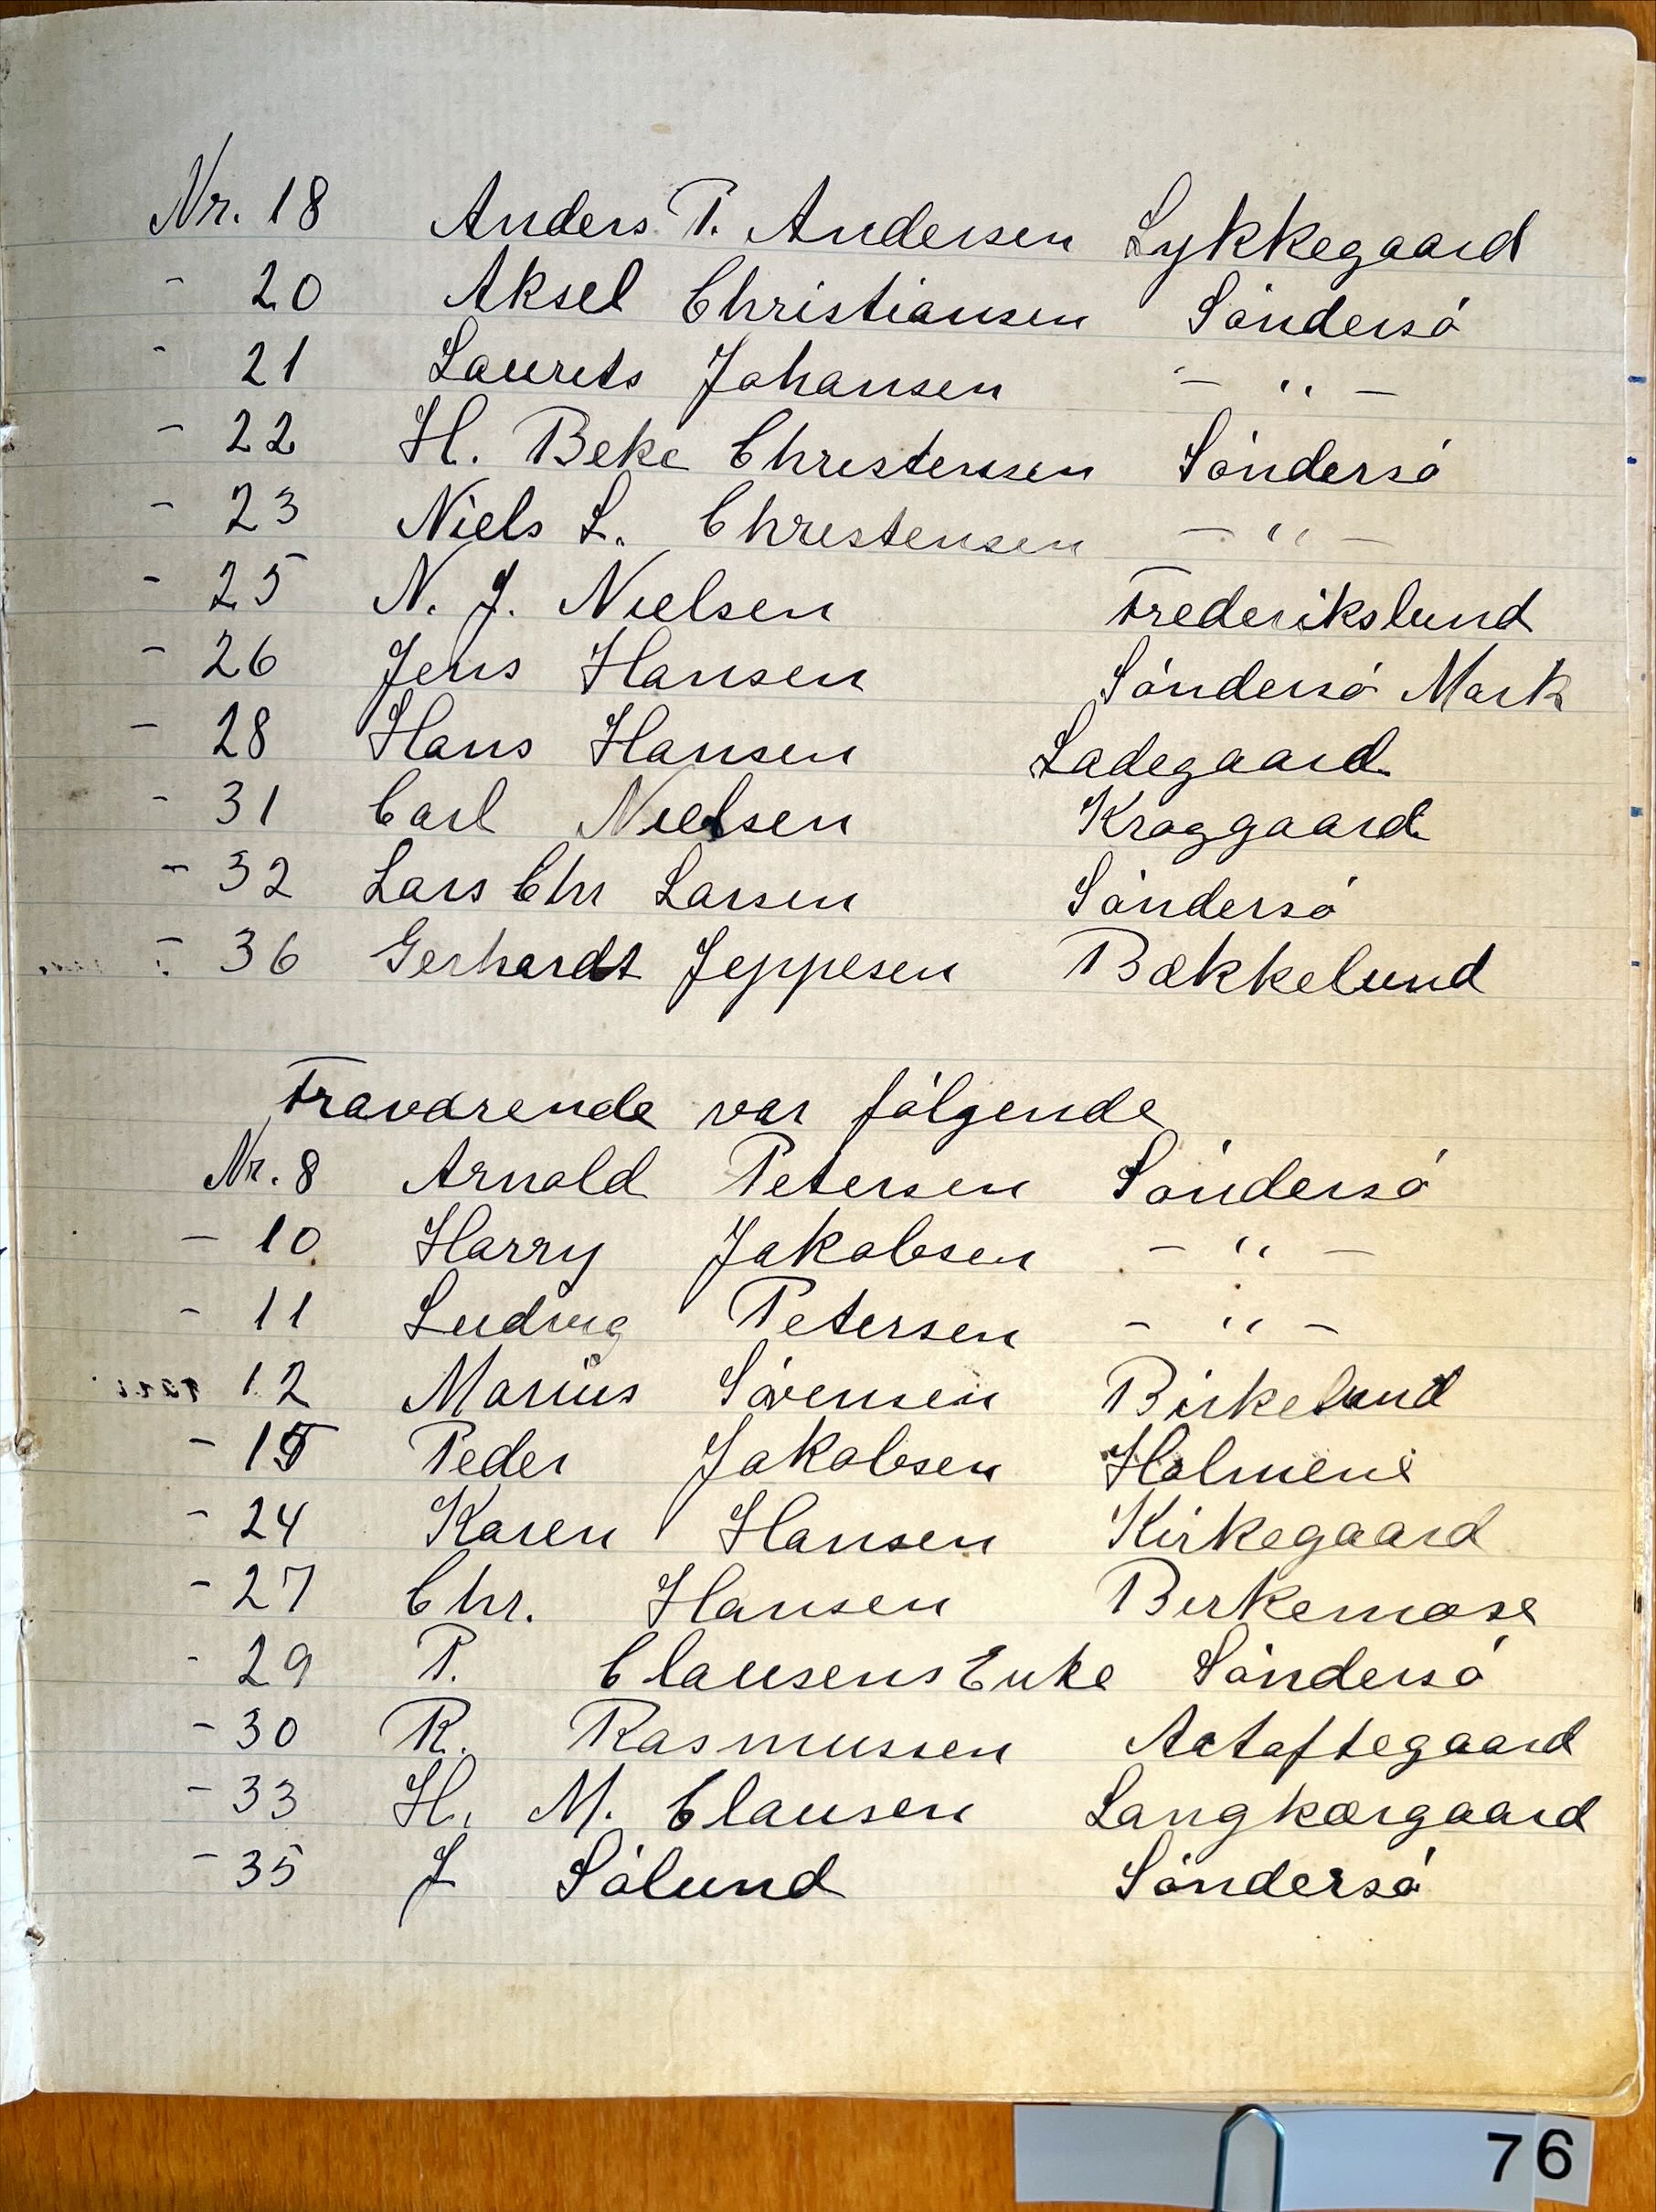 Nr. 18 Anders P. Andersen Lykkegaard
- 20 Aksel Christiansen Sóndersó
- 21 Laurits Johansen - " -
- 22 H. Beke Christensen Sóndersó
- 23 Niels L. Christensen - " -
- 25 N. J. Nielsen Frederikslund
- 26 Jens Hansen Sóndersó Mark
- 28 Hans Hansen Ladegaard
- 31 Carl Nielsen Kraggaard
- 32 Lars Chr Larsen Sóndersó
- 36 Gerhardt Jeppesen Bækkelund
Fraværende var fólgende
Nr. 8 Arnold Petersen Sóndersó
- 10 Harry Jakobsen - " -
- 11 Ludvig Petersen - " -
12 Marius Sórensen Birkelund
- 15 Peder Jakobsen Holmene
- 24 Karen Hansen Kirkegaard
- 27 Chr. Hansen Birkemose
- 29 P. Clausens Enke Sóndersó
- 30 R. Rasmussen Astoftegaard
- 33 H. M. Clausen Langkærgaard
- 35 J Sólund Sóndersó
76